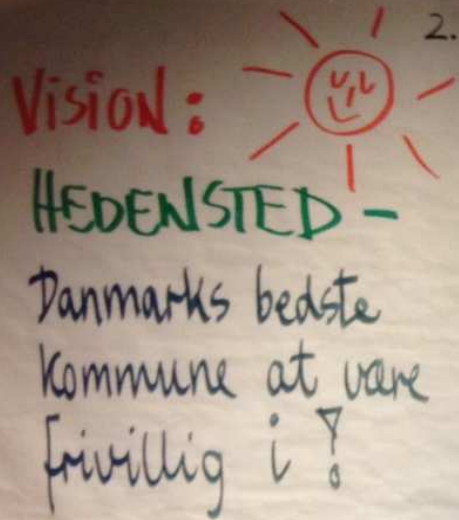 2.
Vision:
HEDENSTED -
Danmarks bedste
Kommune at være
frivillig i!